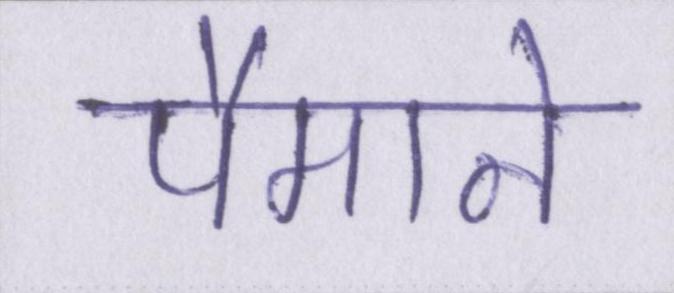 पैमाने